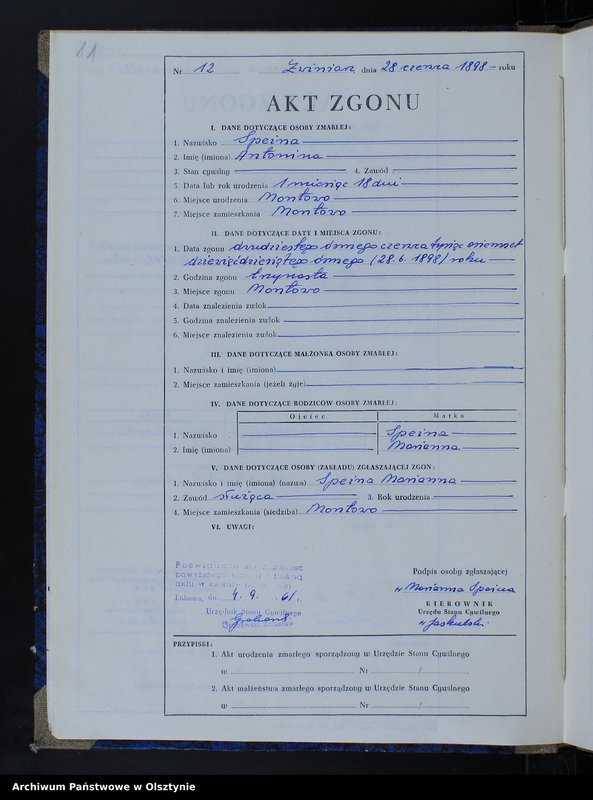 11
Nr 12 Zwiniarz, dnia 28 czerwca 1898 – roku
AKT ZGONU
I. DANE DOTYCZĄCE OSOBY ZMARŁEJ:
1. Nazwisko Speina
2. Imię (imiona) Antonina
3. Stan cywilny 4. Zawód
5. Data lub rok urodzenia 1 miesiąc 18 dni
6. Miejsce urodzenia Montowo
7. Miejsce zamieszkania Montowo
II. DANE DOTYCZĄCE DATY I MIEJSCA ZGONU:
1. Data zgonu dwudziestego ósmego czerwca tysiąc osiemset
dziewięćdziesiątego ósmego (28.6.1898) roku
2. Godzina zgonu trzynasta
3. Miejsce zgonu Montowo
4. Data znalezienia zwłok
5. Godzina znalezienia zwłok
6. Miejsce znalezienia zwłok
III. DANE DOTYCZĄCE MAŁŻONKA OSOBY ZMARŁEJ:
1. Nazwisko i imię (imiona)
2. Miejsce zamieszkania (jeżeli żyje)
IV. DANE DOTYCZĄCE RODZICÓW OSOBY ZMARŁEJ:
Ojciec Matka
1. Nazwisko Speina
2. Imię (imiona) Marianna
V. DANE DOTYCZĄCE OSOBY (ZAKŁADU) ZGŁASZAJĄCEJ ZGON:
1. Nazwisko i imię (imiona) (nazwa) Speina Marianna
2. Zawód służąca 3. Rok urodzenia
4. Miejsce zamieszkania (siedziba) Montowo
VI. UWAGI:
Poświadcza się zgodność
powyższego z treścią
aktu w księdze
Lubawa, dn. 4. 9. 1961 r.
Urzędnik Stanu Cywilnego
Podpis osoby zgłaszającej
Marianna Speina
KIEROWNIK
Urzędu Stanu Cywilnego
Jaskulski
PRZYPISKI:
1. Akt urodzenia zmarłego sporządzony w Urzędzie Stanu Cywilnego
w Nr /
2. Akt małżeństwa zmarłego sporządzony w Urzędzie Stanu Cywilnego
w Nr /
Archiwum Państwowe w Olsztynie